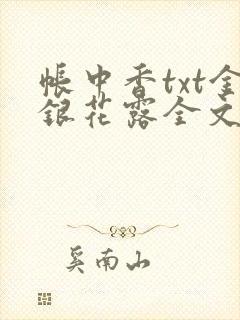 帐中香txt金
银花露全文
奚南山